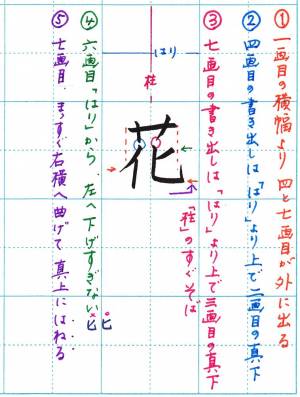 ① 一画目の横幅より四と七画目が外に出る
② 四画目の書き出しは「はり」より上で二画目の真下
③ 七画目の書き出しは「はり」より上で三画目の真下
「柱」のすぐそば
はり
柱
花
④ 六画目「はり」から左へ下げすぎない
匕
ヒ
⑤ 七画目、まっすぐ右横へ曲げて真上にはねる